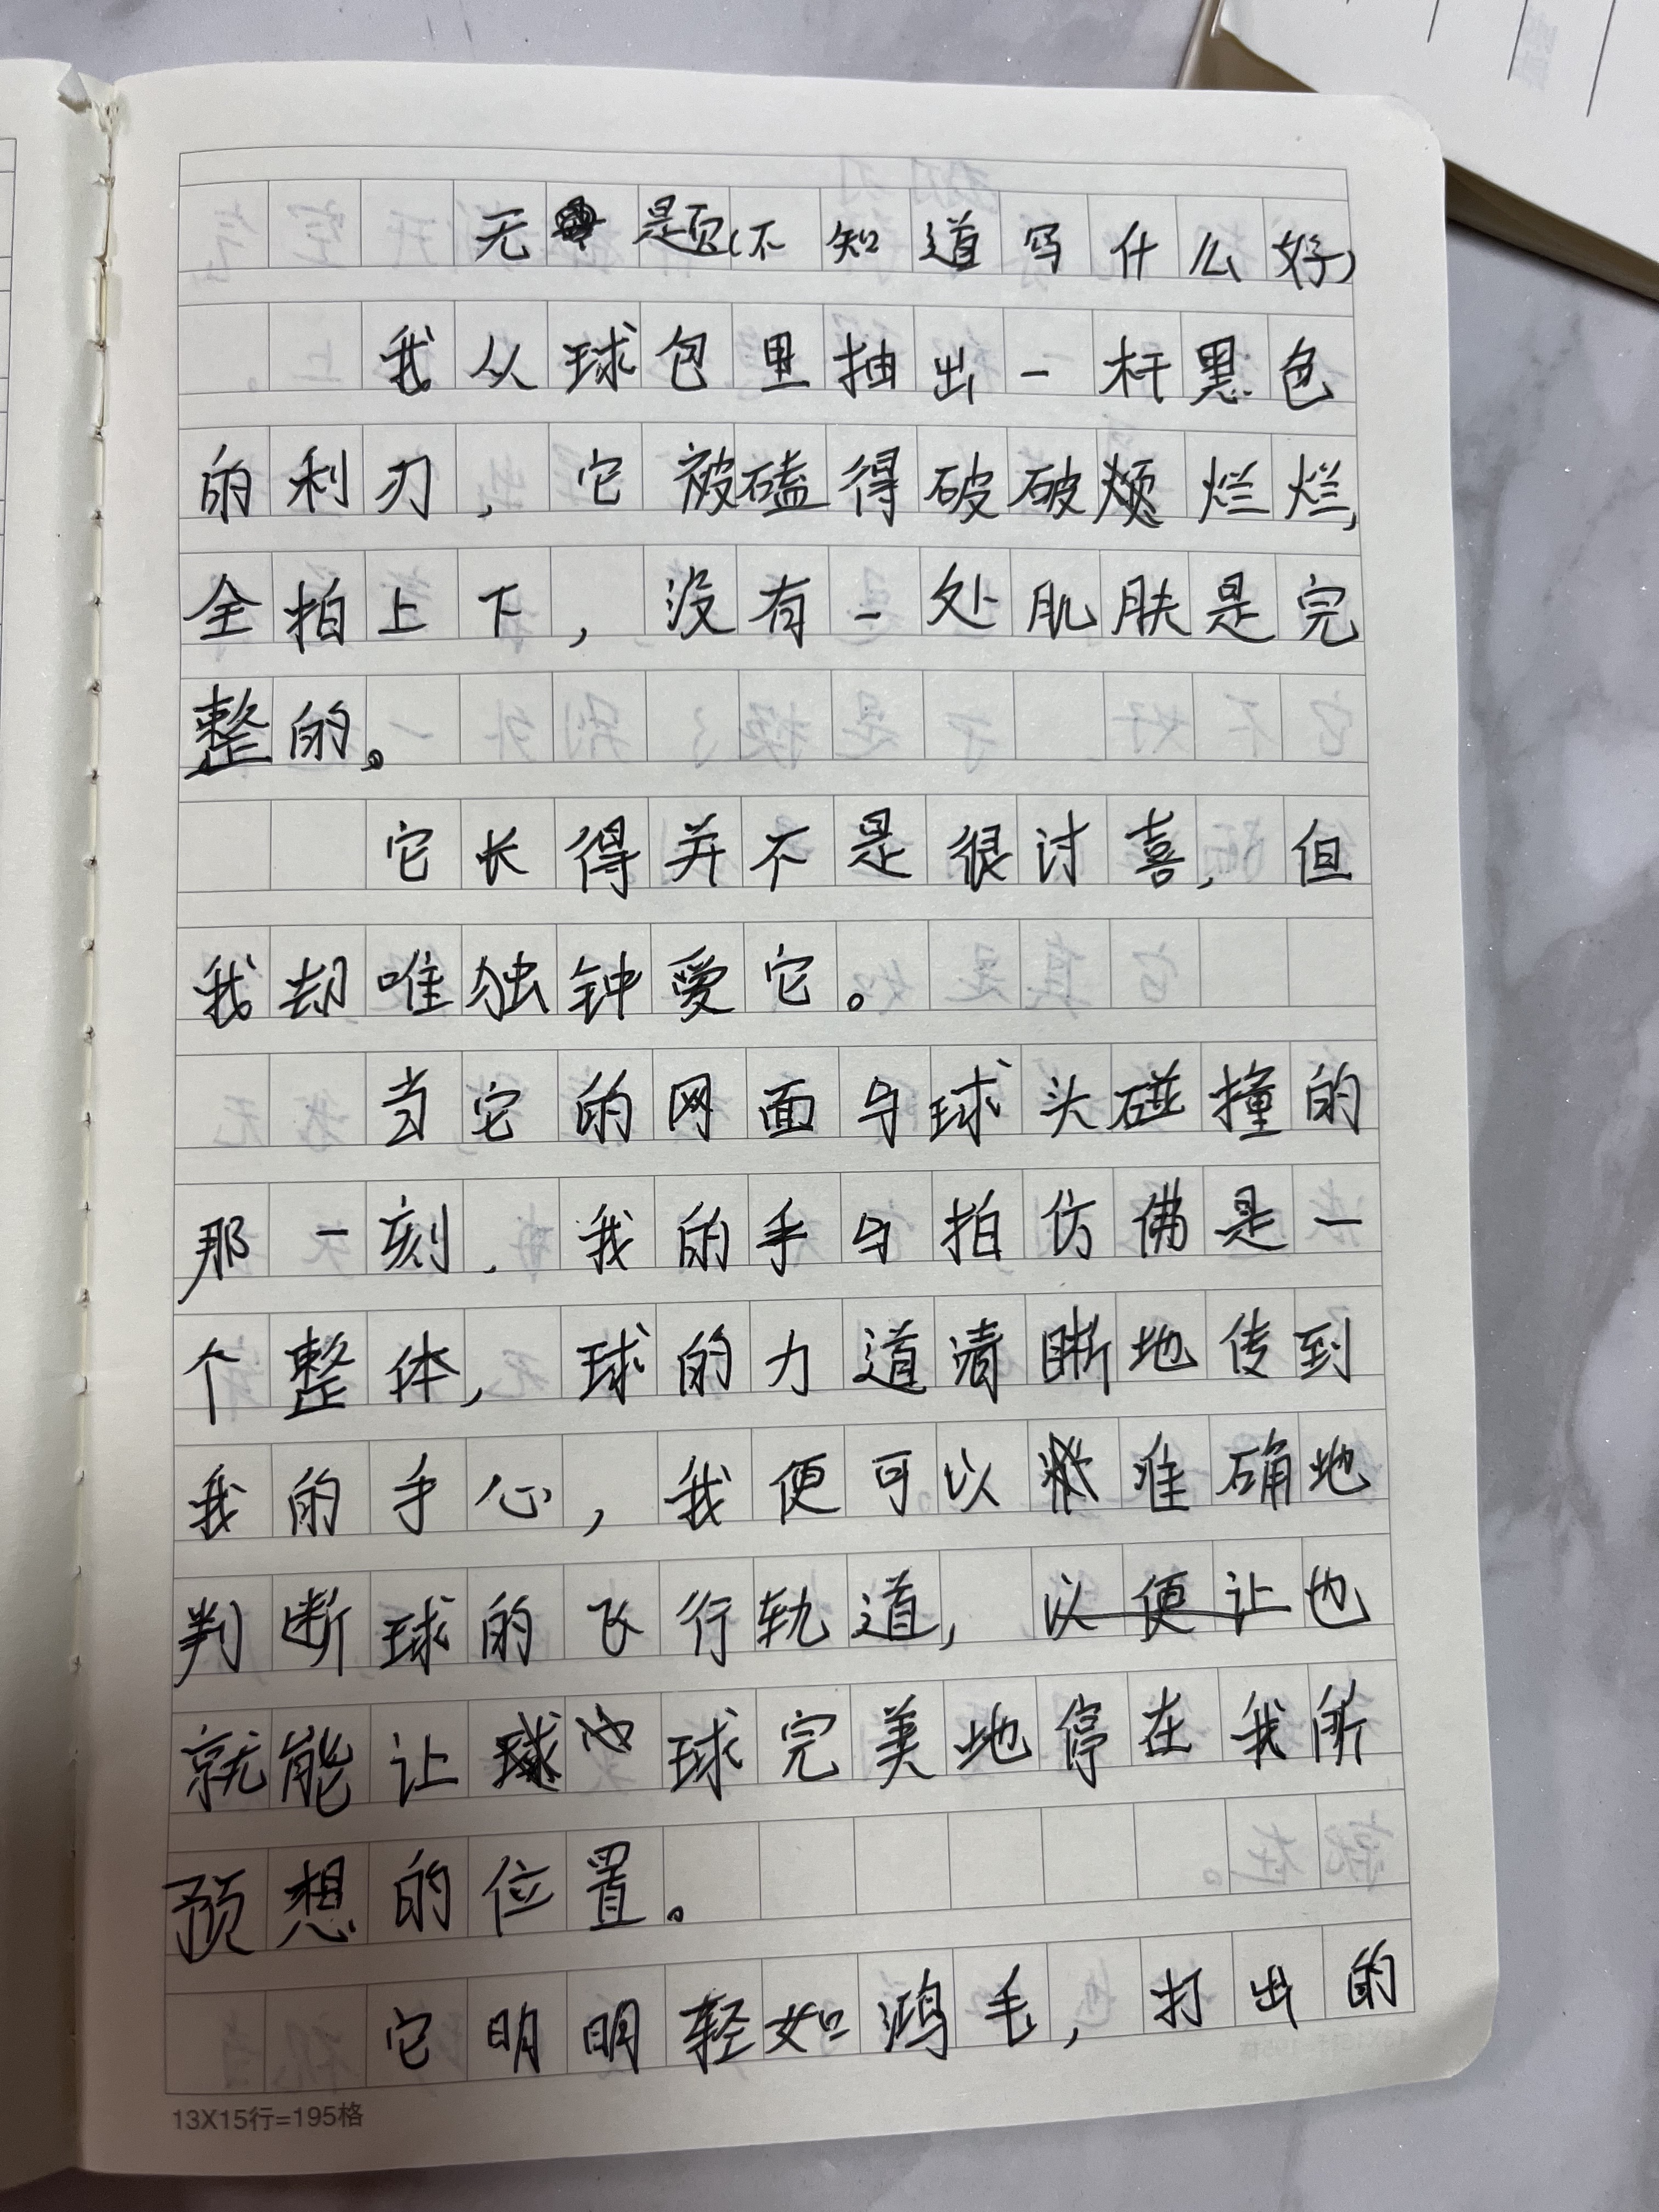 无题(不知道写什么好)
我从球包里抽出一杆黑色
的利刃，它被磕得破破烂烂,
全拍上下，没有一处肌肤是完
整的。
它长得并不是很讨喜，但
我却唯独钟爱它。
当它的网面与球头碰撞的
那一刻，我的手与拍仿佛是一
个整体，球的力道清晰地传到
我的手心，我便可以准确地
判断球的飞行轨道，以便让也
就能让球完美地停在我所
预想的位置。
它明明轻如鸿毛，打出的
13X15行=195格